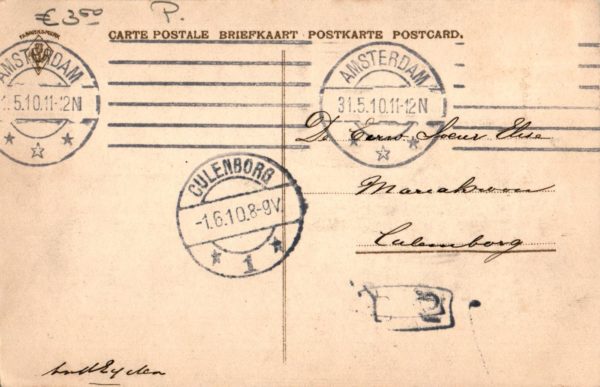 € 3.50
P.
FABRIEKSMERK
CARTE POSTALE BRIEFKAART POSTKARTE POSTCARD.
AMSTERDAM
1.5.10.11-12N
AMSTERDAM
31.5.10.11-12N
De Eerw. Soeur Elise
CULENBORG
-1.6.10.8-9V.
1
Culemborg